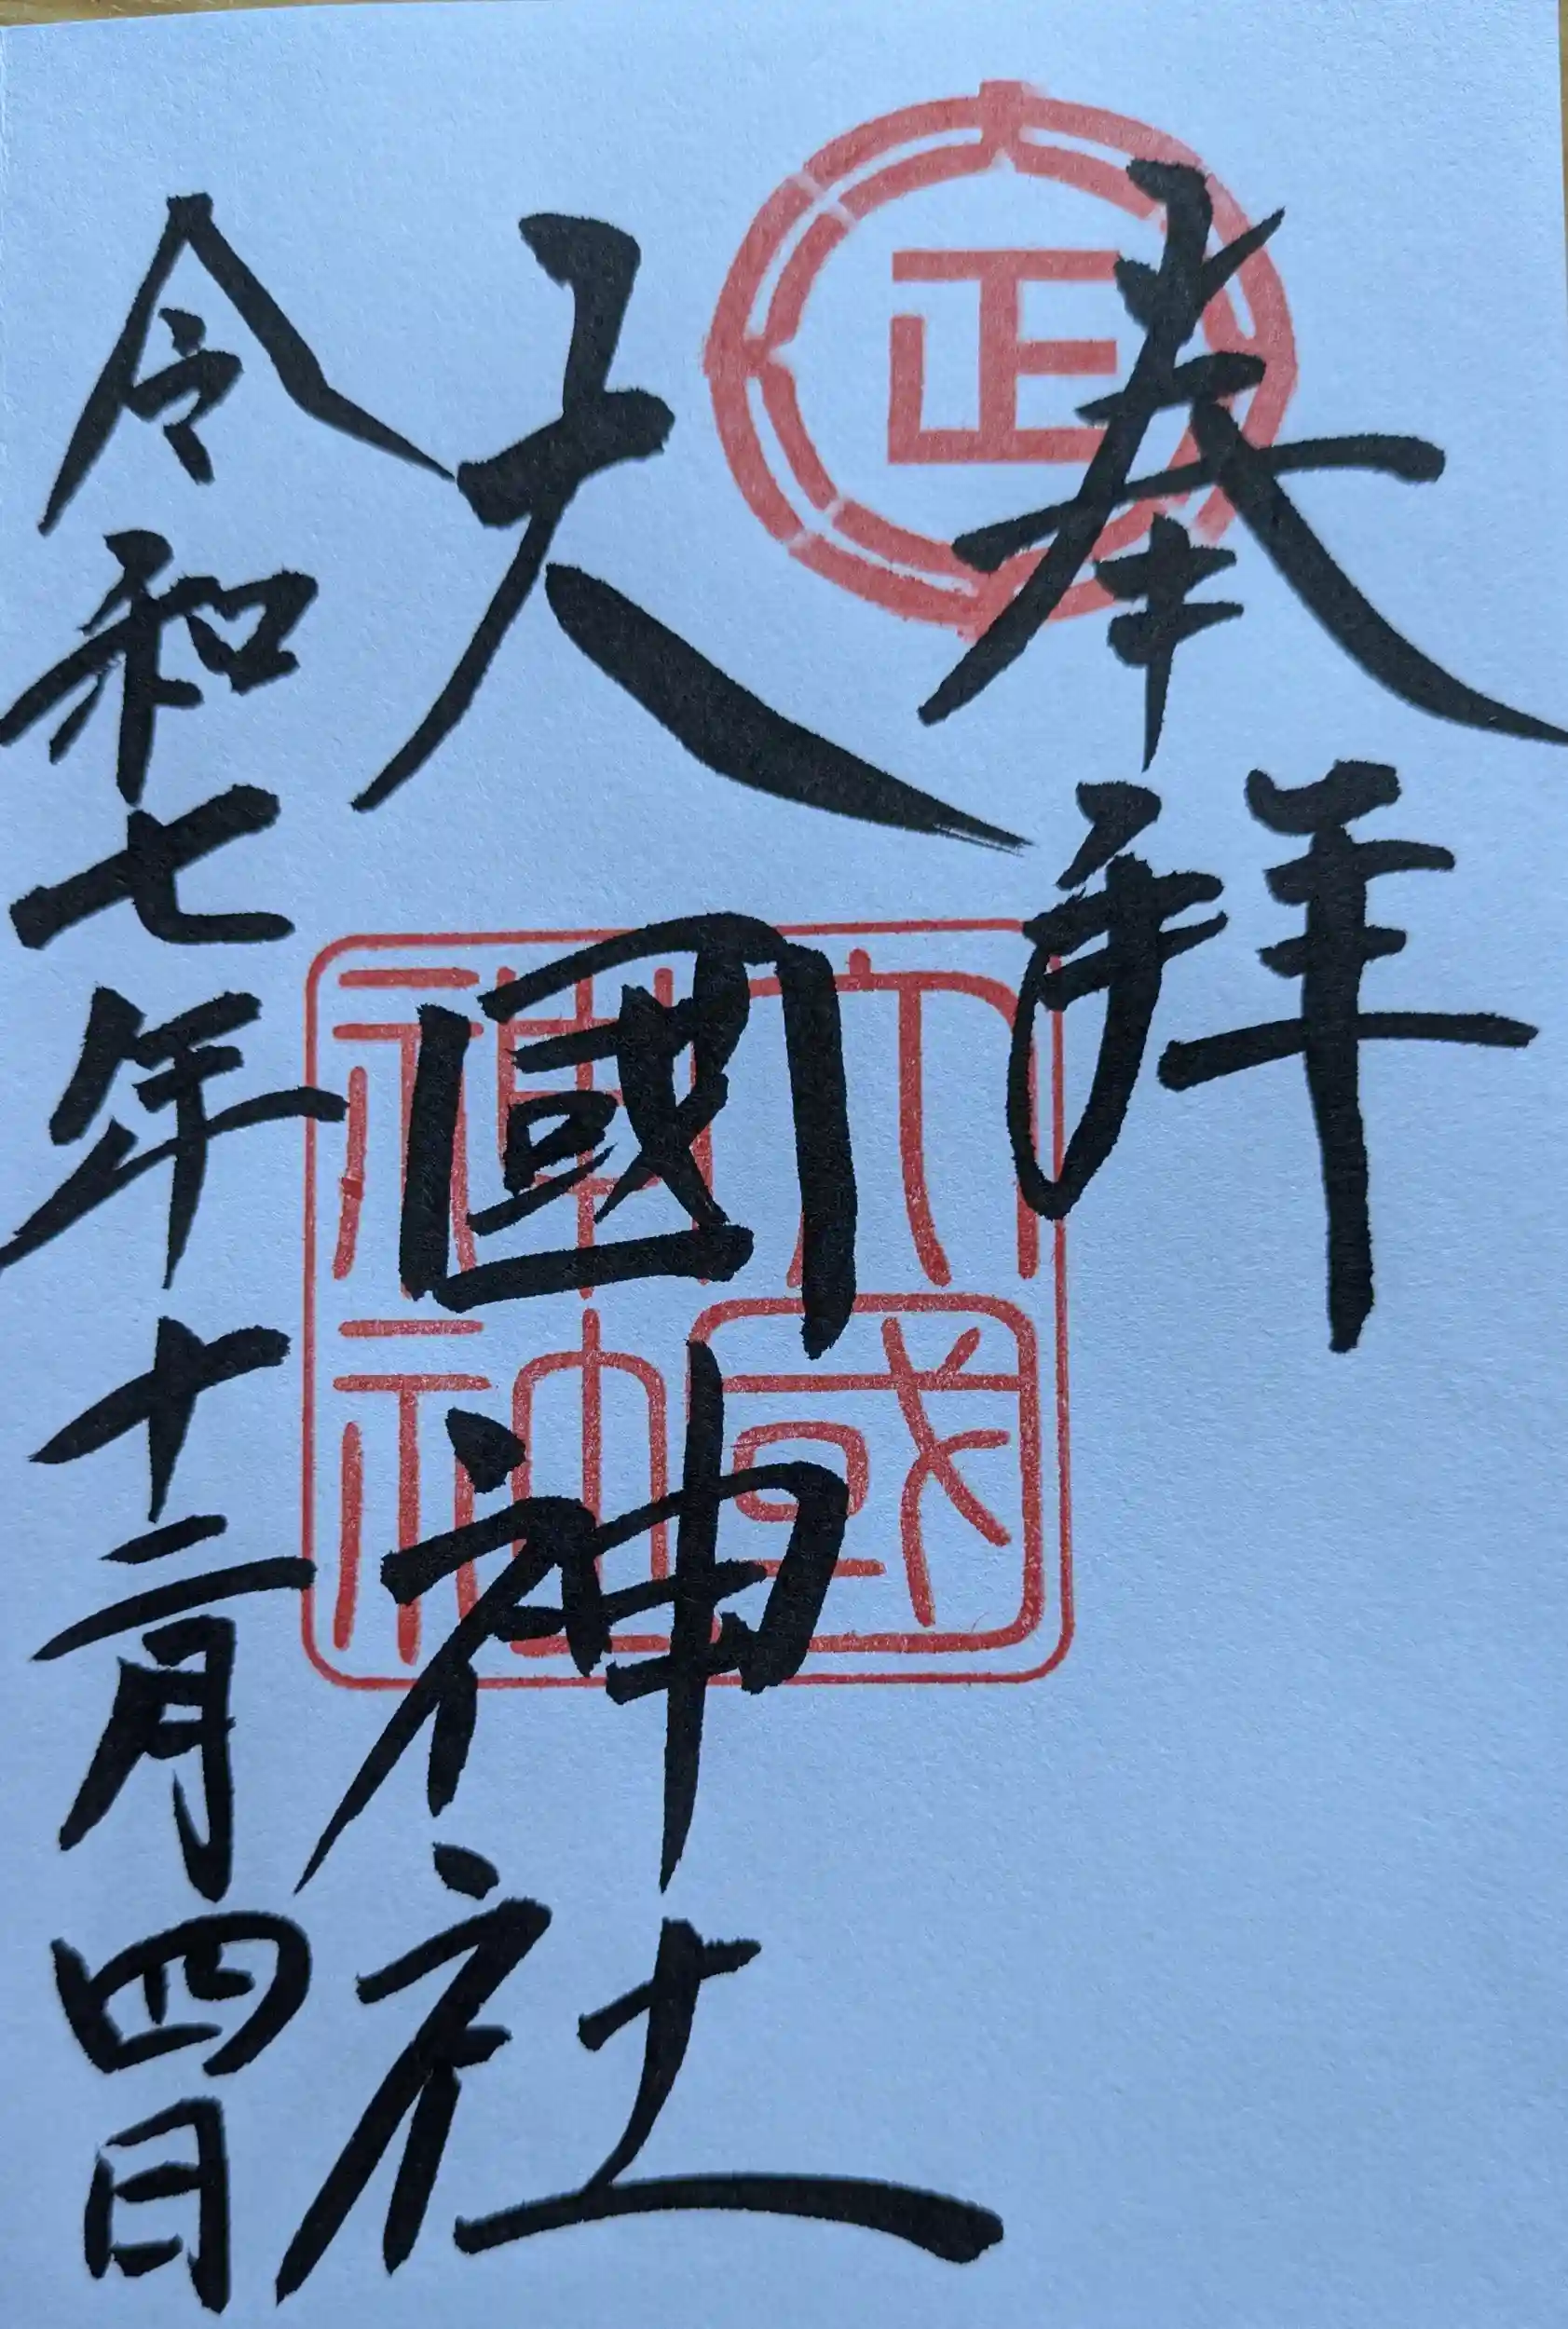 奉拝
正
大國神社
大國神神
令和七年十二月四日